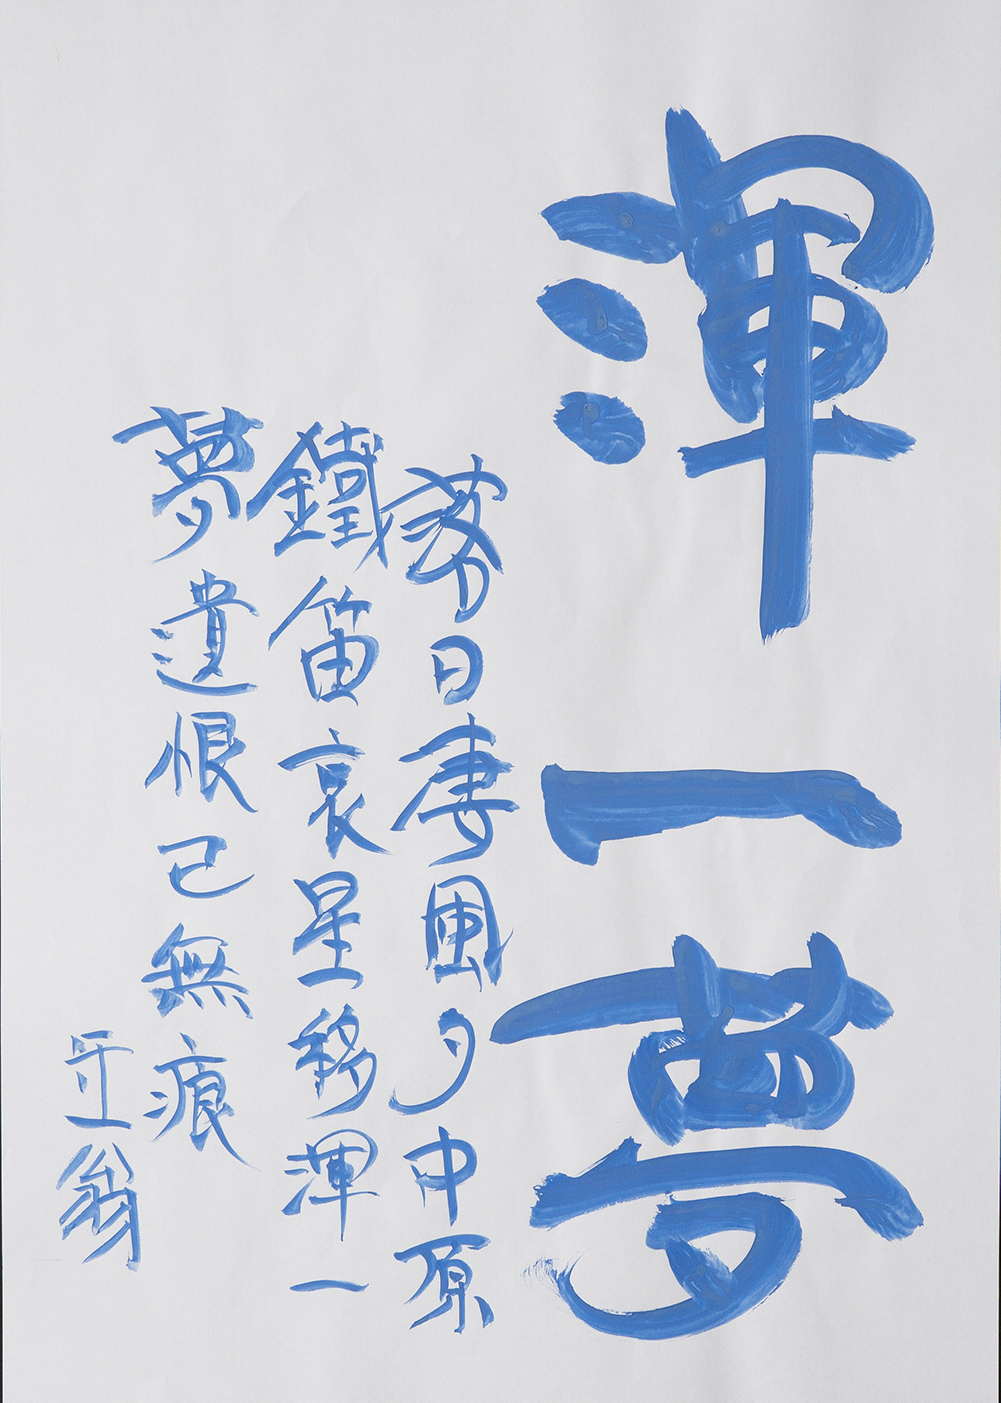 渾一夢
落日凄風夕中原
鐵笛哀星移渾一
夢遺恨已無痕
翁